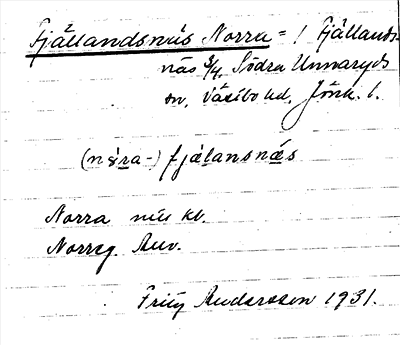 Fjällandsnäs Norra = ! Fjällands-
näs 3/4, Södra Unnaryds
sn, Västbo hd, Jönk. l.
(nɷ̀ra-) fjälansnäs
Norra näs kl.
Norreg. Auv.
Fritz Andersson 1931.